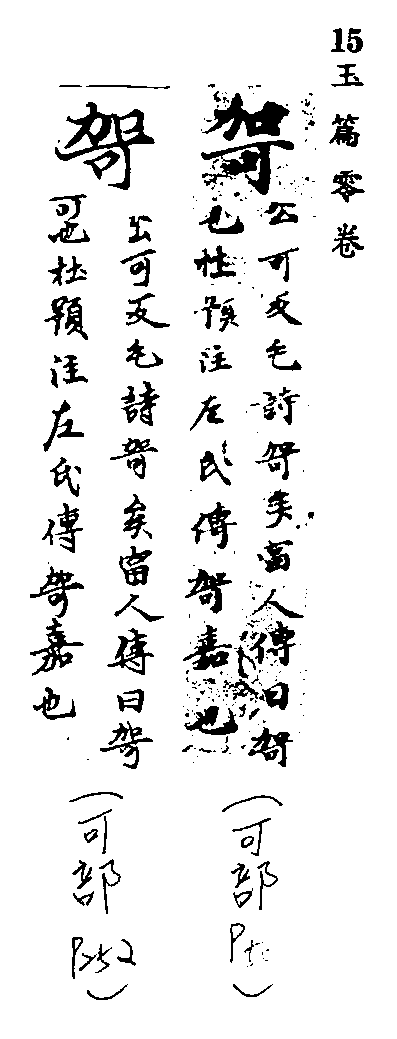 15玉篇零卷
哿
公可反毛詩哿矣富人傳曰哿
也杜預注左氏傳哿嘉也
(可部 P
哿
公可反毛詩哿矣富人傳曰哿
可也杜預注左氏傳哿嘉也
(可部 P252)